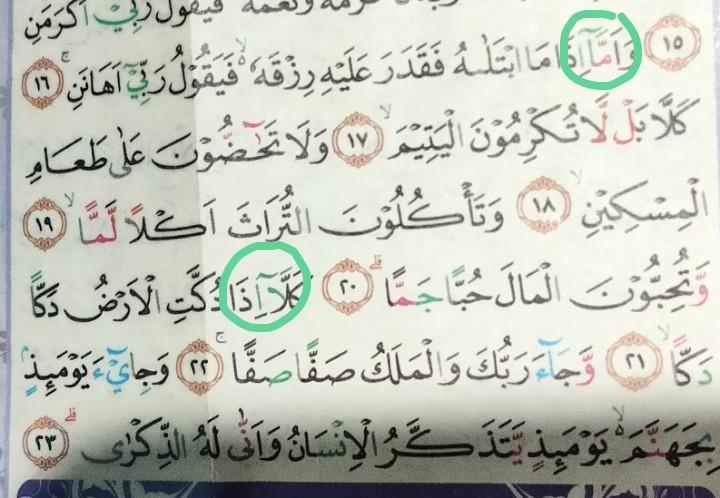 فَيَقُوْلُ رَبِّيْٓ اَكْرَمَنِ
۱۵ وَاَمَّآ اِذَا مَا ابْتَلٰىهُ فَقَدَرَ عَلَيْهِ رِزْقَهٗ ۙ فَيَقُوْلُ رَبِّيْٓ اَهَانَنِ ۚ ۱۶
كَلَّا بَلْ لَّا تُكْرِمُوْنَ الْيَتِيْمَ ۙ ۱۷ وَلَا تَحٰٓضُّوْنَ عَلٰى طَعَامِ
الْمِسْكِيْنِ ۙ ۱۸ وَتَأْكُلُوْنَ التُّرَاثَ اَكْلًا لَّمًّا ۙ ۱۹
وَّتُحِبُّوْنَ الْمَالَ حُبًّا جَمًّا ۗ ۲۰ كَلَّآ اِذَا دُكَّتِ الْاَرْضُ دَكًّا
دَكًّا ۙ ۲۱ وَّجَآءَ رَبُّكَ وَالْمَلَكُ صَفًّا صَفًّا ۚ ۲۲ وَجِايْٓءَ يَوْمَىِٕذٍۢ
بِجَهَنَّمَ ۙ يَوْمَىِٕذٍ يَّتَذَكَّرُ الْاِنْسَانُ وَاَنّٰى لَهُ الذِّكْرٰى ۗ ۲۳